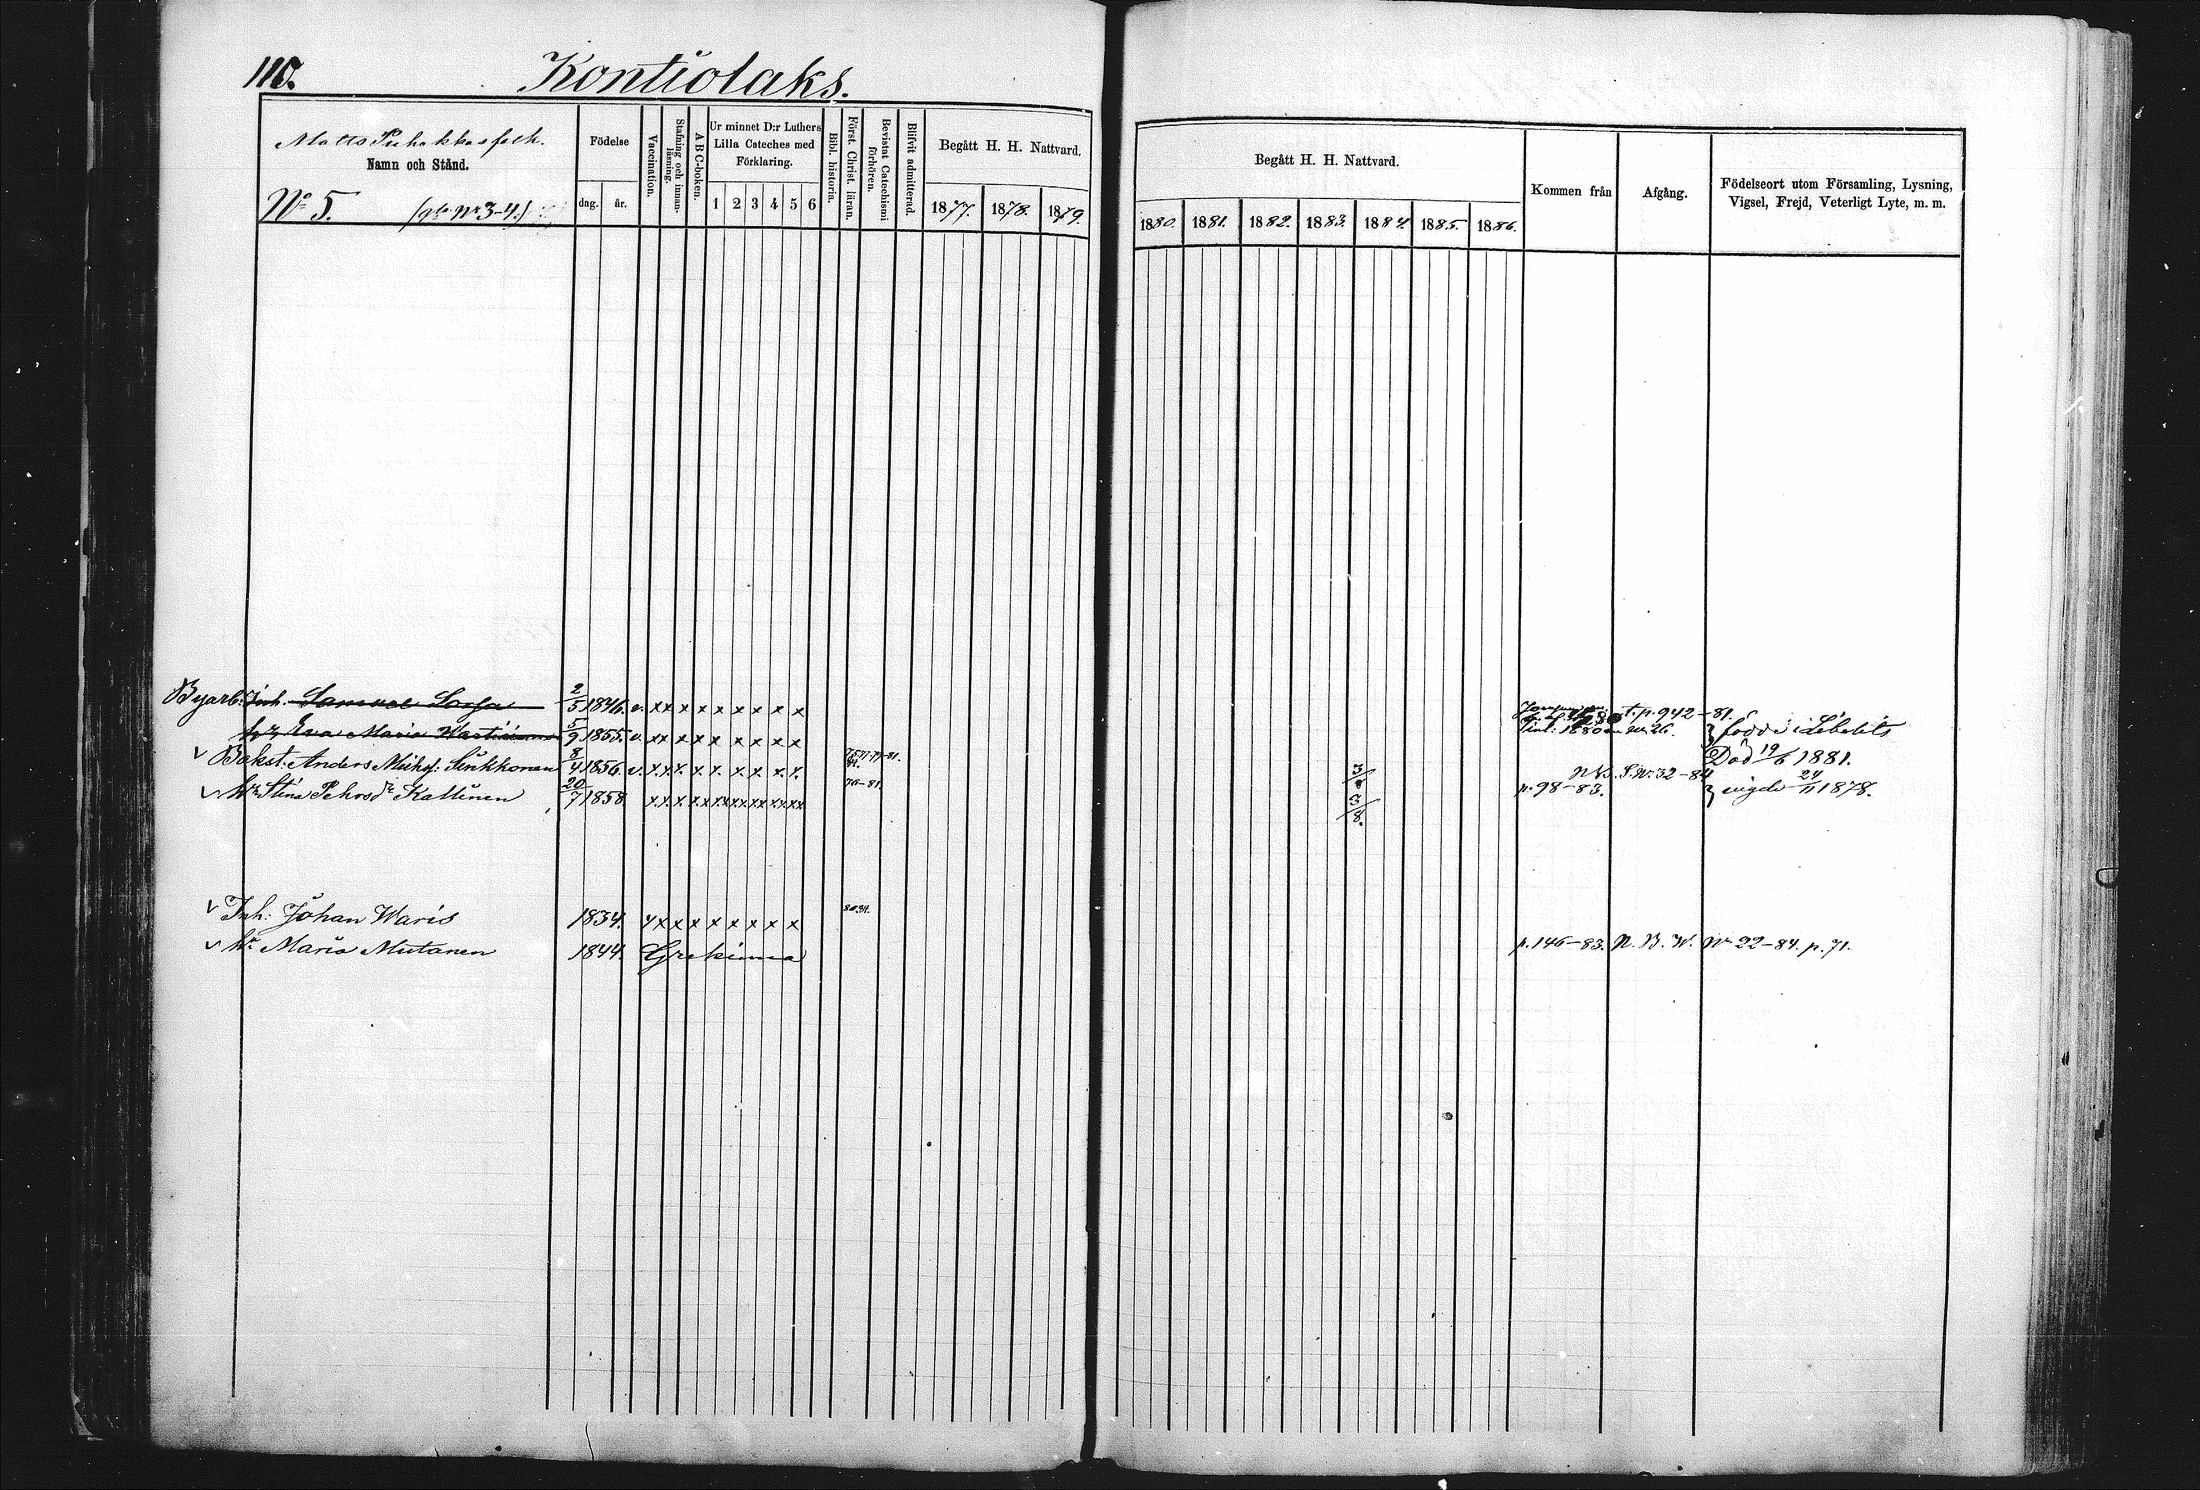 110.
Kontiolaks.
Matts Puhakka
Namn och Stånd.
No 5. No 3-4.)
Födelse
dag. år.
Vaccination.
Stafning och innanläsning.
ABC-boken.
Ur minnet D:r Luthers Lilla Cateches med Förklaring.
1 2 3 4 5 6
Bibl. historia.
Först. Christ. läran.
Bevistat Catechismi förhören.
Blifvit admitterad.
Begått H. H. Nattvard.
1877. 1878. 1879.
Begått H. H. Nattvard.
1880. 1881. 1882. 1883. 1884. 1885. 1886.
Kommen från
Afgång.
Födelseort utom Församling, Lysning, Vigsel, Frejd, Veterligt Lyte, m. m.
Byarb: Inh. Samuel Sorsa 2/5 1846. v. x x x x x x x x x t. p. 942-81.
Eva Maria 5/9 1855. v. x x x x x x x x x 1880 No 26. } födde i Libelits
v Bakst: Anders Sinkkonen 8/4 1856. v. x x x x x x x x x Död 19/6 1881.
v Stina Pehrsdr Kallinen 20/7 1858 76-81. 3/8. p. 98-83. No 32-84 } vigde 24/11 1878.
v Inh: Johan Waris 1834. x x x x x x x x
v Maria Mutanen 1844. Grekinna p. 146-83. N. B. W. No 22-84. p. 71.